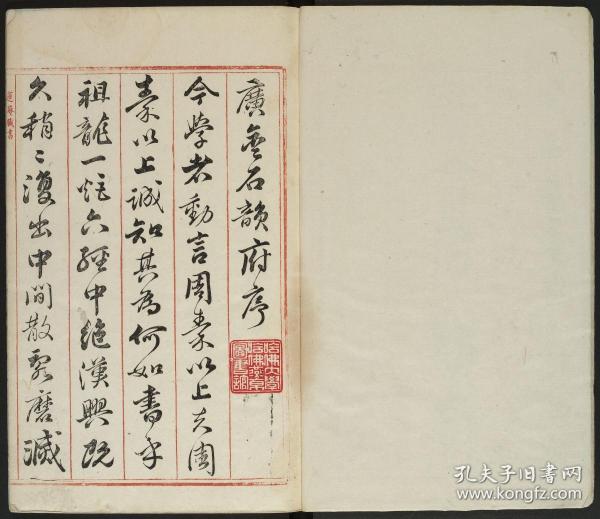 廣金石韻府序
今學者動言周秦以上夫周
秦以上誠知其為何如書乎
祖龍一炬六經中絕漢興既
久稍〻復出中間散亂磨滅
哈佛大學
哈佛燕京
圖書館
孔夫子旧书网
www.kongfz.com